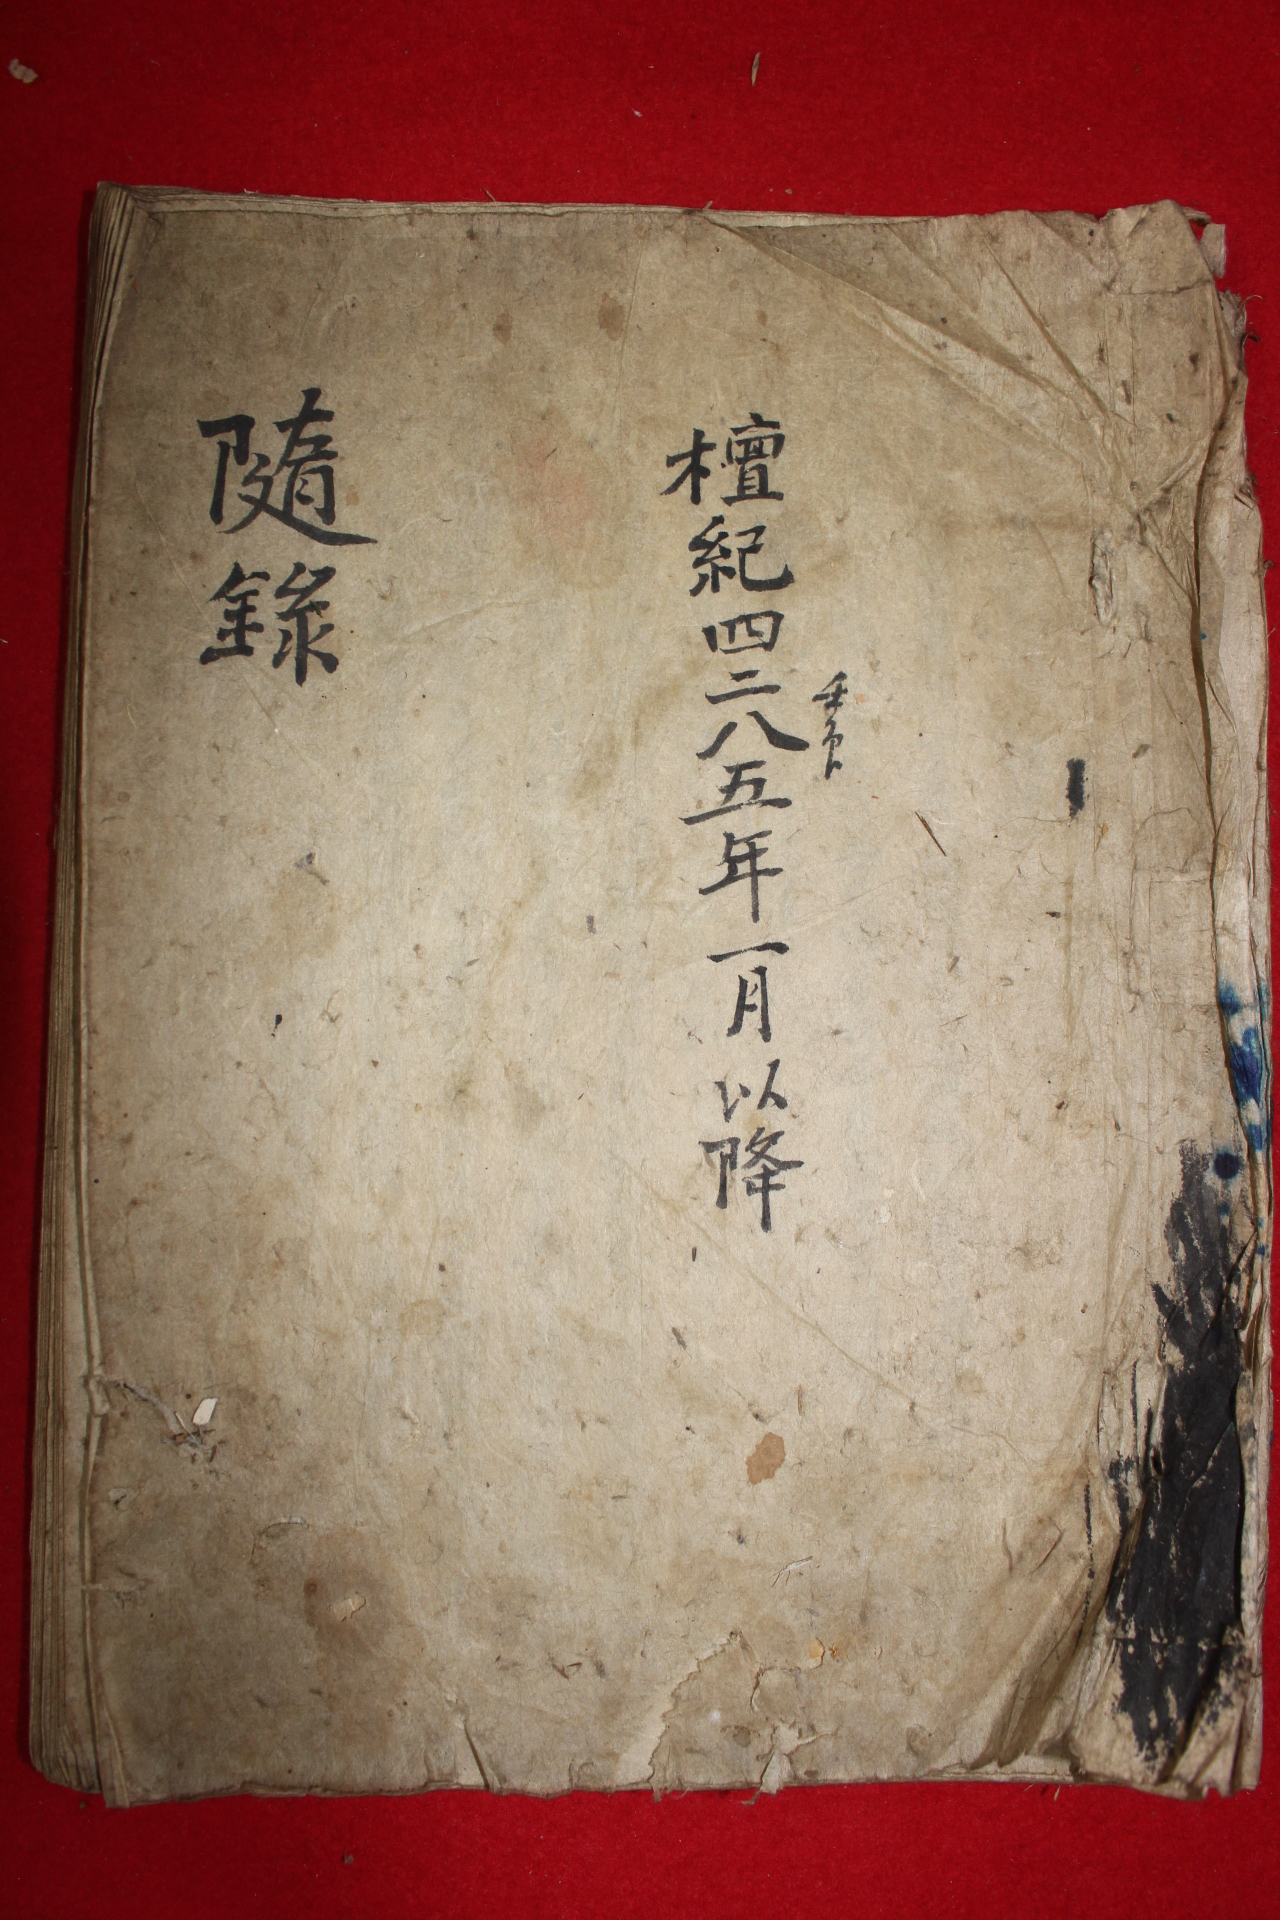 壬辰
檀紀四二八五年一月以降
隨錄